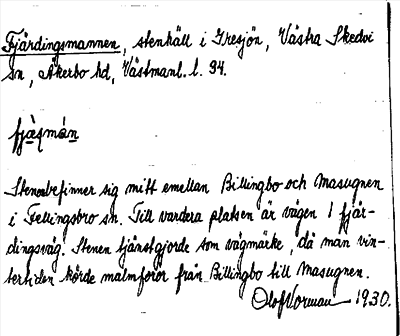 Fjärdingsmannen, stenhäll i Iresjön, Västra Skedvi
sn, Åkerbo hd, Västmanl. l. 94.
fjäṣmán
Stenen befinner sig mitt emellan Billingbo och Masugnen
i Fellingsbro sn. Till vardera platsen är vägen 1 fjär-
dingsväg. Stenen tjänstgjorde som vägmärke, då man vin-
tertiden körde malmforor från Billingbo till Masugnen.
Olof Vorman 1930.